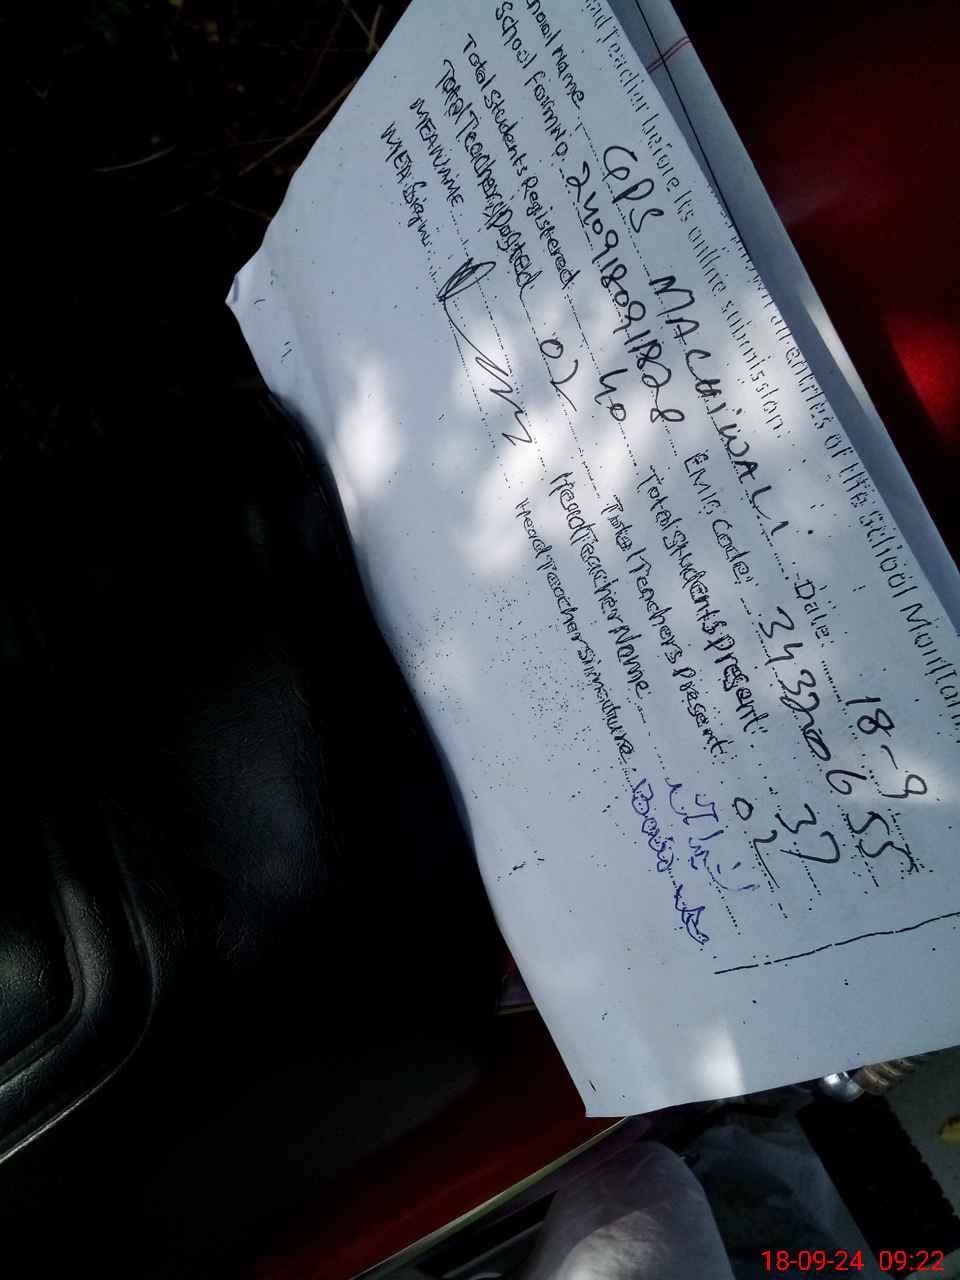 ad Teacher before its online submission. all entries of the School Monitorin
School Name GPS MACHIWALI Date: 18-9
School FormNo. 240918091828 EMIS Code: 34320655
Total Students Registered 40 Total Students present: 37
Total Teachers Posted 02 Total Teachers Present: 02
MEA NAME Head Teacher Name
MEA Sign: Head Teacher Sineture.
18-09-24 09:22